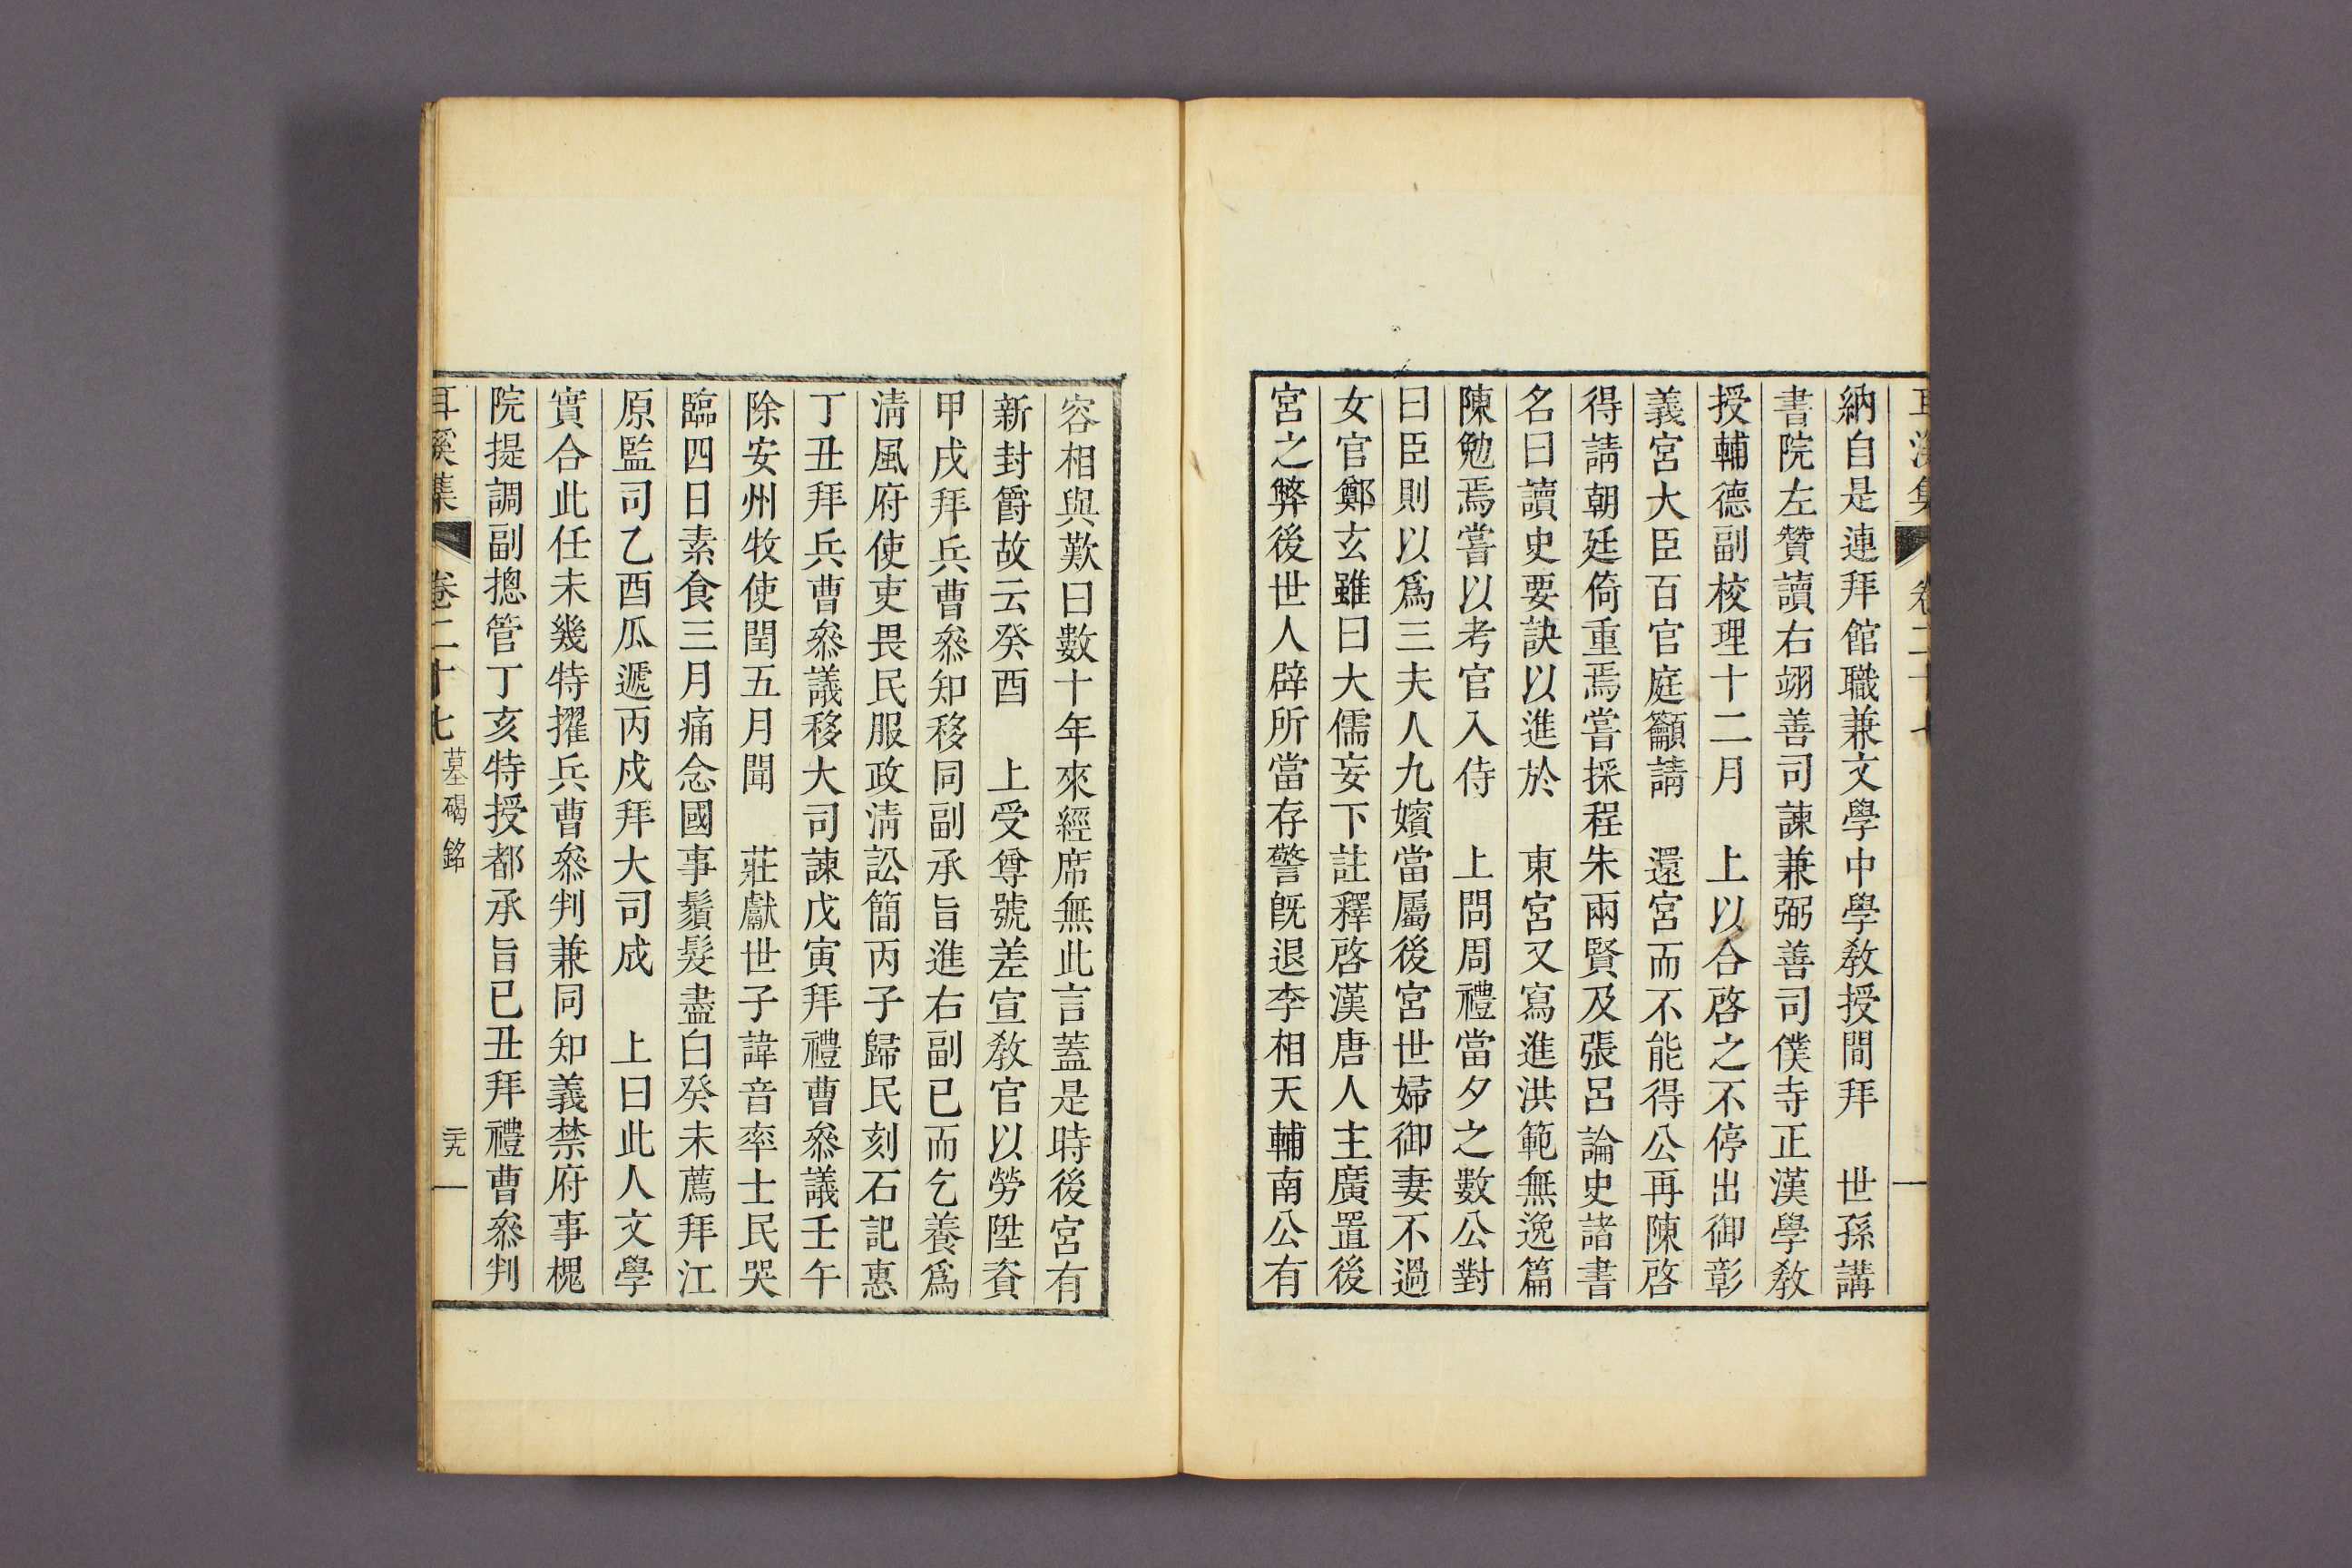 納自是連拜館職兼文學中學敎授間拜　世孫講
書院左贊讀右翊善司諫兼弼善司僕寺正漢學敎
授輔德副校理十二月　上以合啓之不停出御彰
義宮大臣百官庭籲請　還宮而不能得公再陳啓
得請朝廷倚重焉嘗採程朱兩賢及張呂論史諸書
名曰讀史要訣以進於　東宮又寫進洪範無逸篇
陳勉焉嘗以考官入侍　上問周禮當夕之數公對
曰臣則以爲三夫人九嬪當屬後宮世婦御妻不過
女官鄭玄雖曰大儒妄下註釋啓漢唐人主廣置後
宮之弊後世人辟所當存警旣退李相天輔南公有
容相與歎曰數十年來經席無此言蓋是時後宮有
新封爵故云癸酉　上受尊號差宣敎官以勞陞資
甲戌拜兵曹叅知移同副承旨進右副已而乞養爲
淸風府使吏畏民服政淸訟簡丙子歸民刻石記惠
丁丑拜兵曹叅議移大司諫戊寅拜禮曹叅議壬午
除安州牧使閏五月聞　莊獻世子諱音率士民哭
臨四日素食三月痛念國事鬚髮盡白癸未薦拜江
原監司乙酉瓜遞丙戌拜大司成　上曰此人文學
實合此任未幾特擢兵曹叅判兼同知義禁府事槐
院提調副摠管丁亥特授都承旨已丑拜禮曹叅判
耳溪集　卷二十七　墓碣銘　二十九